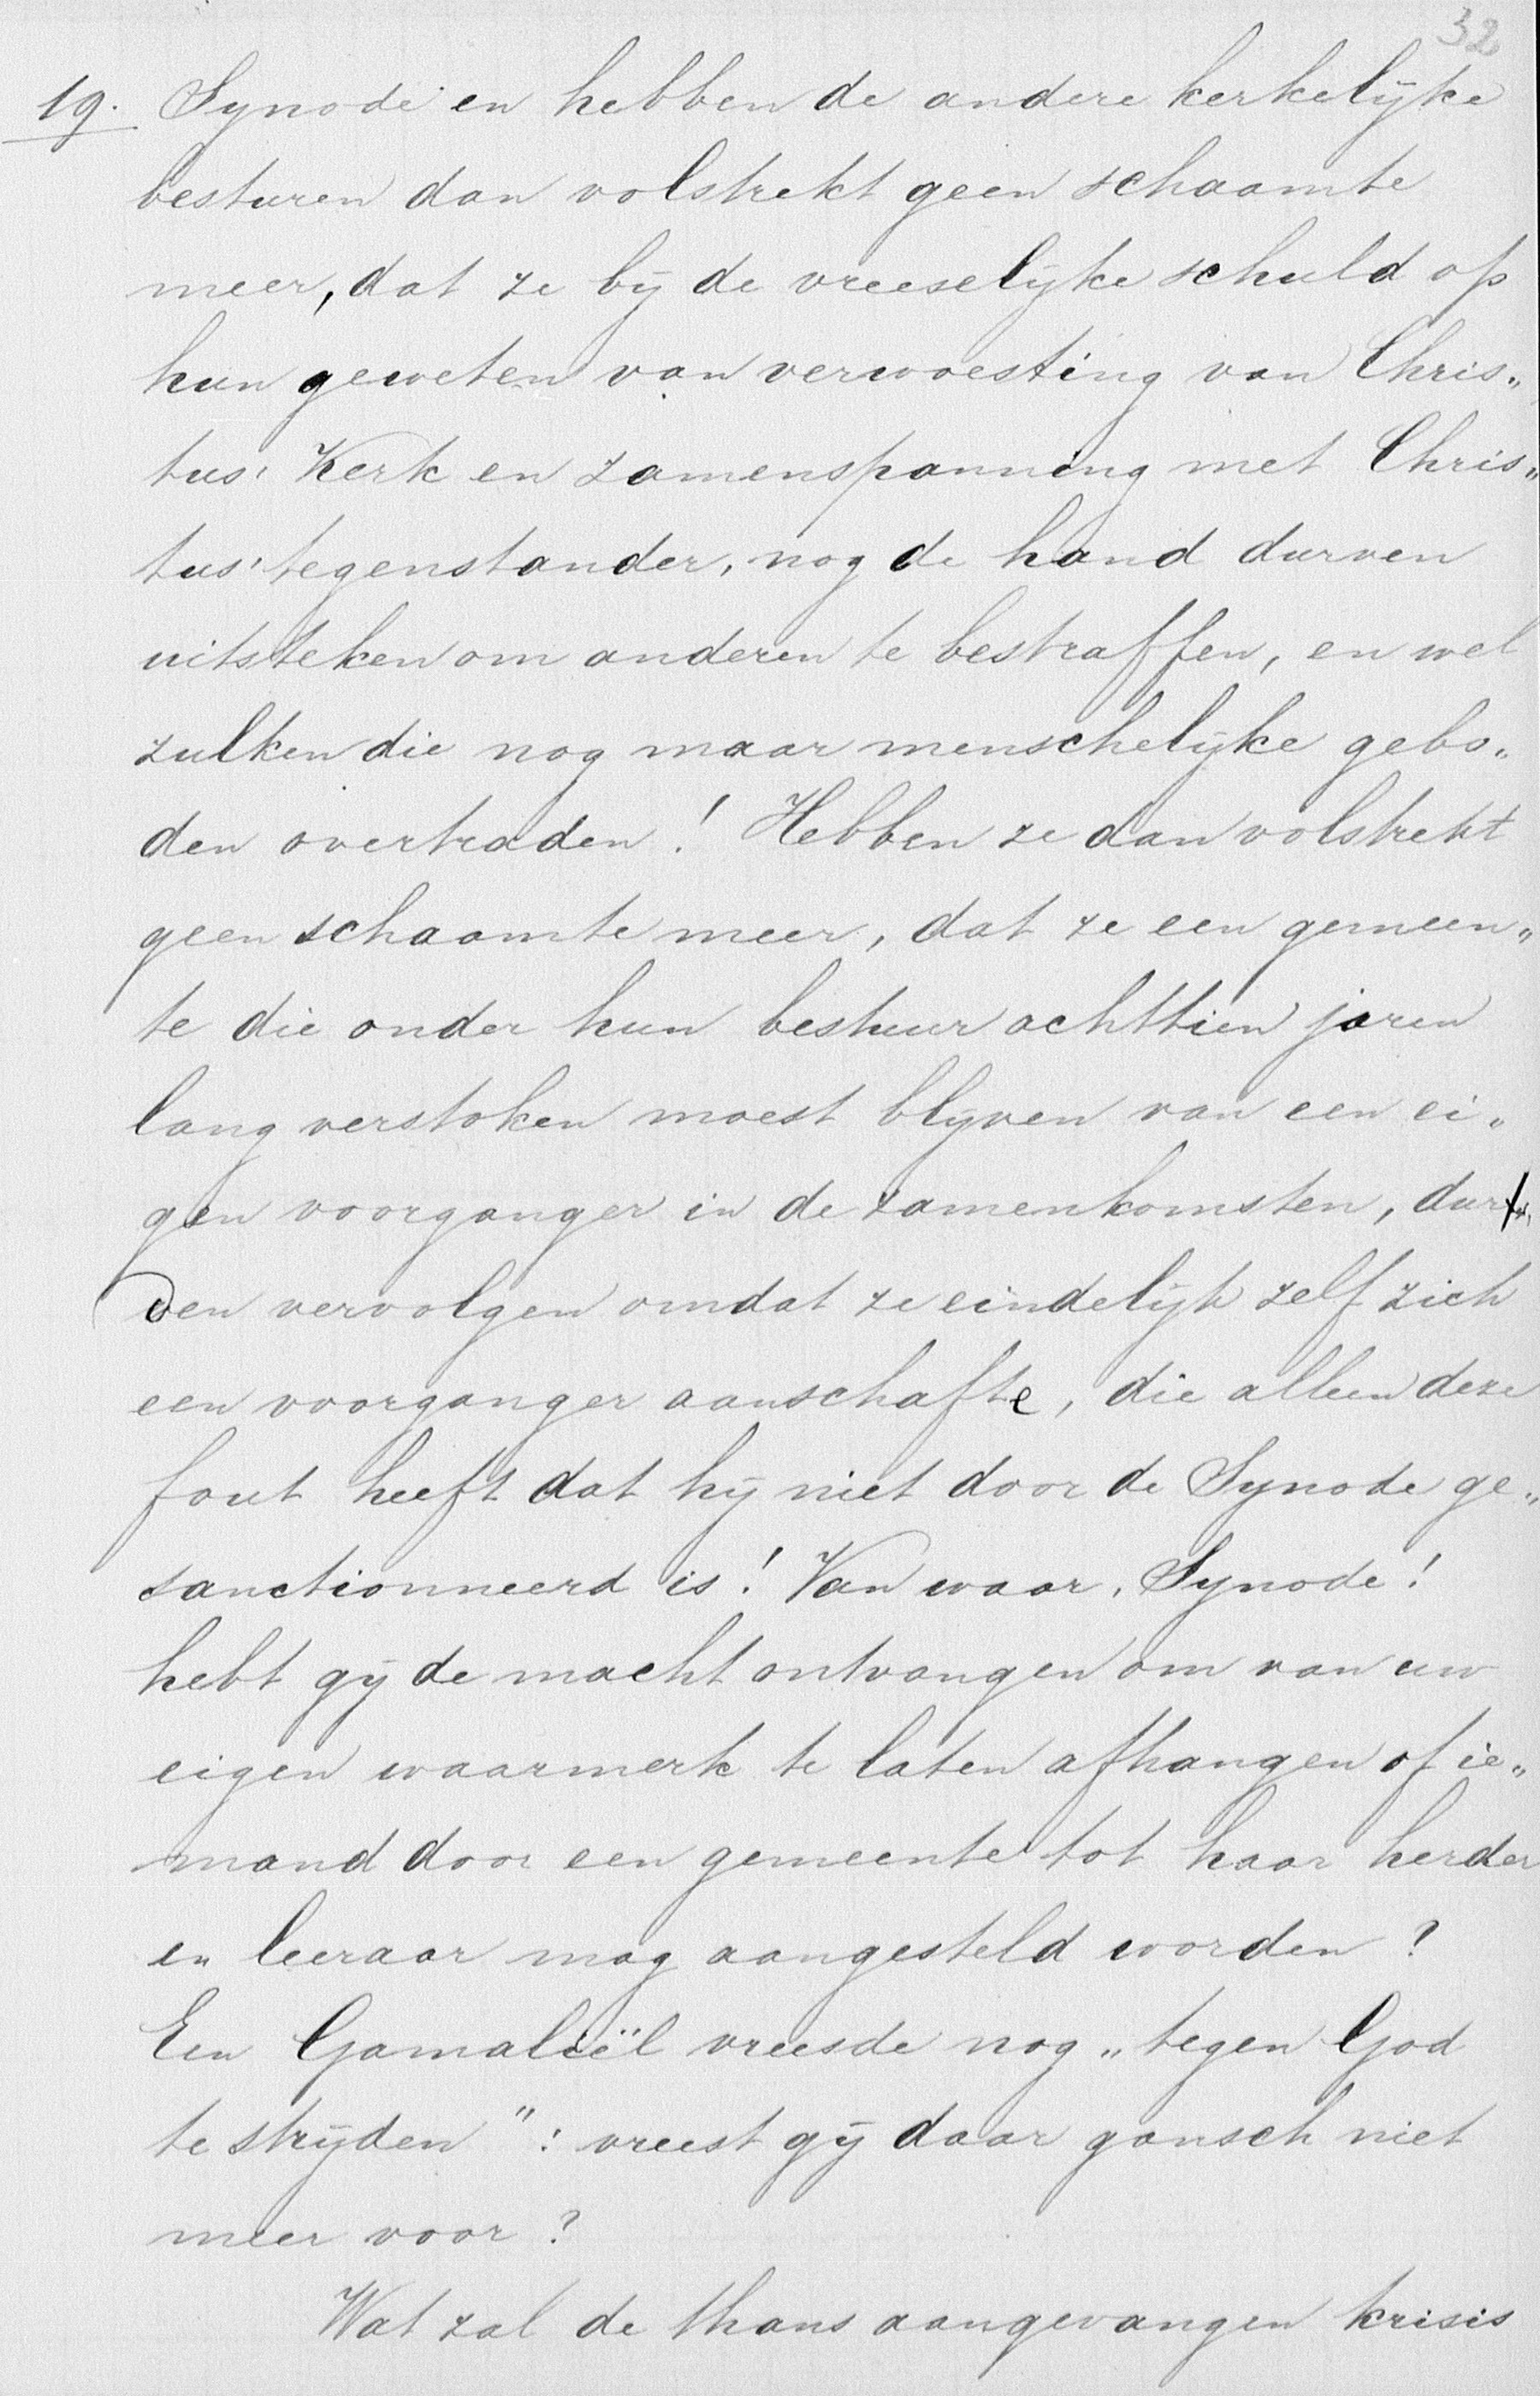 32
19. Synode en hebben de andere kerkelijke
besturen dan volstrekt geen schaamte
meer, dat ze bij de vreeselijke schuld op
hun geweten van verwoesting van Chris„
tus' Kerk en zamenspanning met Chris„
tus' tegenstander, nog de hand durven
uitsteken om anderen te bestraffen, en wel
zulken die nog maar menschelijke gebo„
den overtraden! Hebben ze dan volstrekt
geen schaamte meer, dat ze een gemeen„
te die onder hun bestuur achttien jaren
lang verstoken moest blijven van een ei„
gen voorganger in de zamenkomsten, dur„
ven vervolgen omdat ze eindelijk zelf zich
een voorganger aanschafte, die alleen deze
fout heeft dat hij niet door de Synode ge„
sanctionneerd is! Van waar, Synode!
hebt gij de macht ontvangen om van uw
eigen waarmerk te laten afhangen of ie„
mand door een gemeente tot haar herder
en leeraar mag aangesteld worden?
Een Gamaliël vreesde nog „tegen God
te strijden": vreest gij daar gansch niet
meer voor?
Wat zal de thans aangevangen krisis